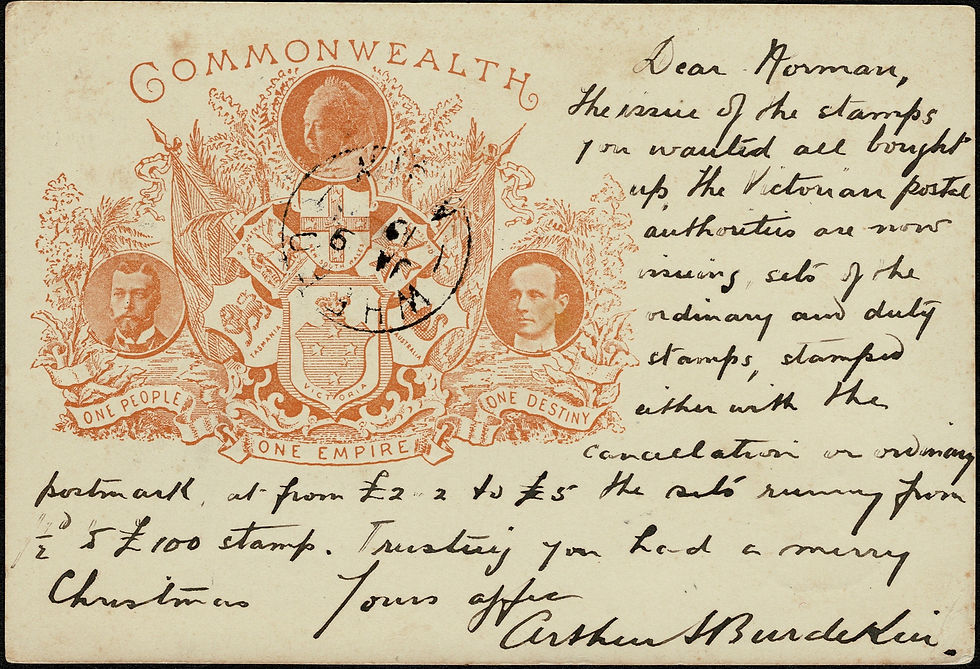 COMMONWEALTH
TASMANIA
AUSTRALIA
VICTORIA
ONE PEOPLE
ONE DESTINY
ONE EMPIRE
Dear Norman,
the issue of the stamps
you wanted all bought
up, the Victorian postal
authorities are now
issuing sets of the
ordinary and duty
stamps, stamped
either with the
cancellation or ordinary
postmark, at from £2.2 to £5 the sets running from
½d to £100 stamp. Trusting you had a merry
Christmas Yours affec
Arthur S Burdekin.